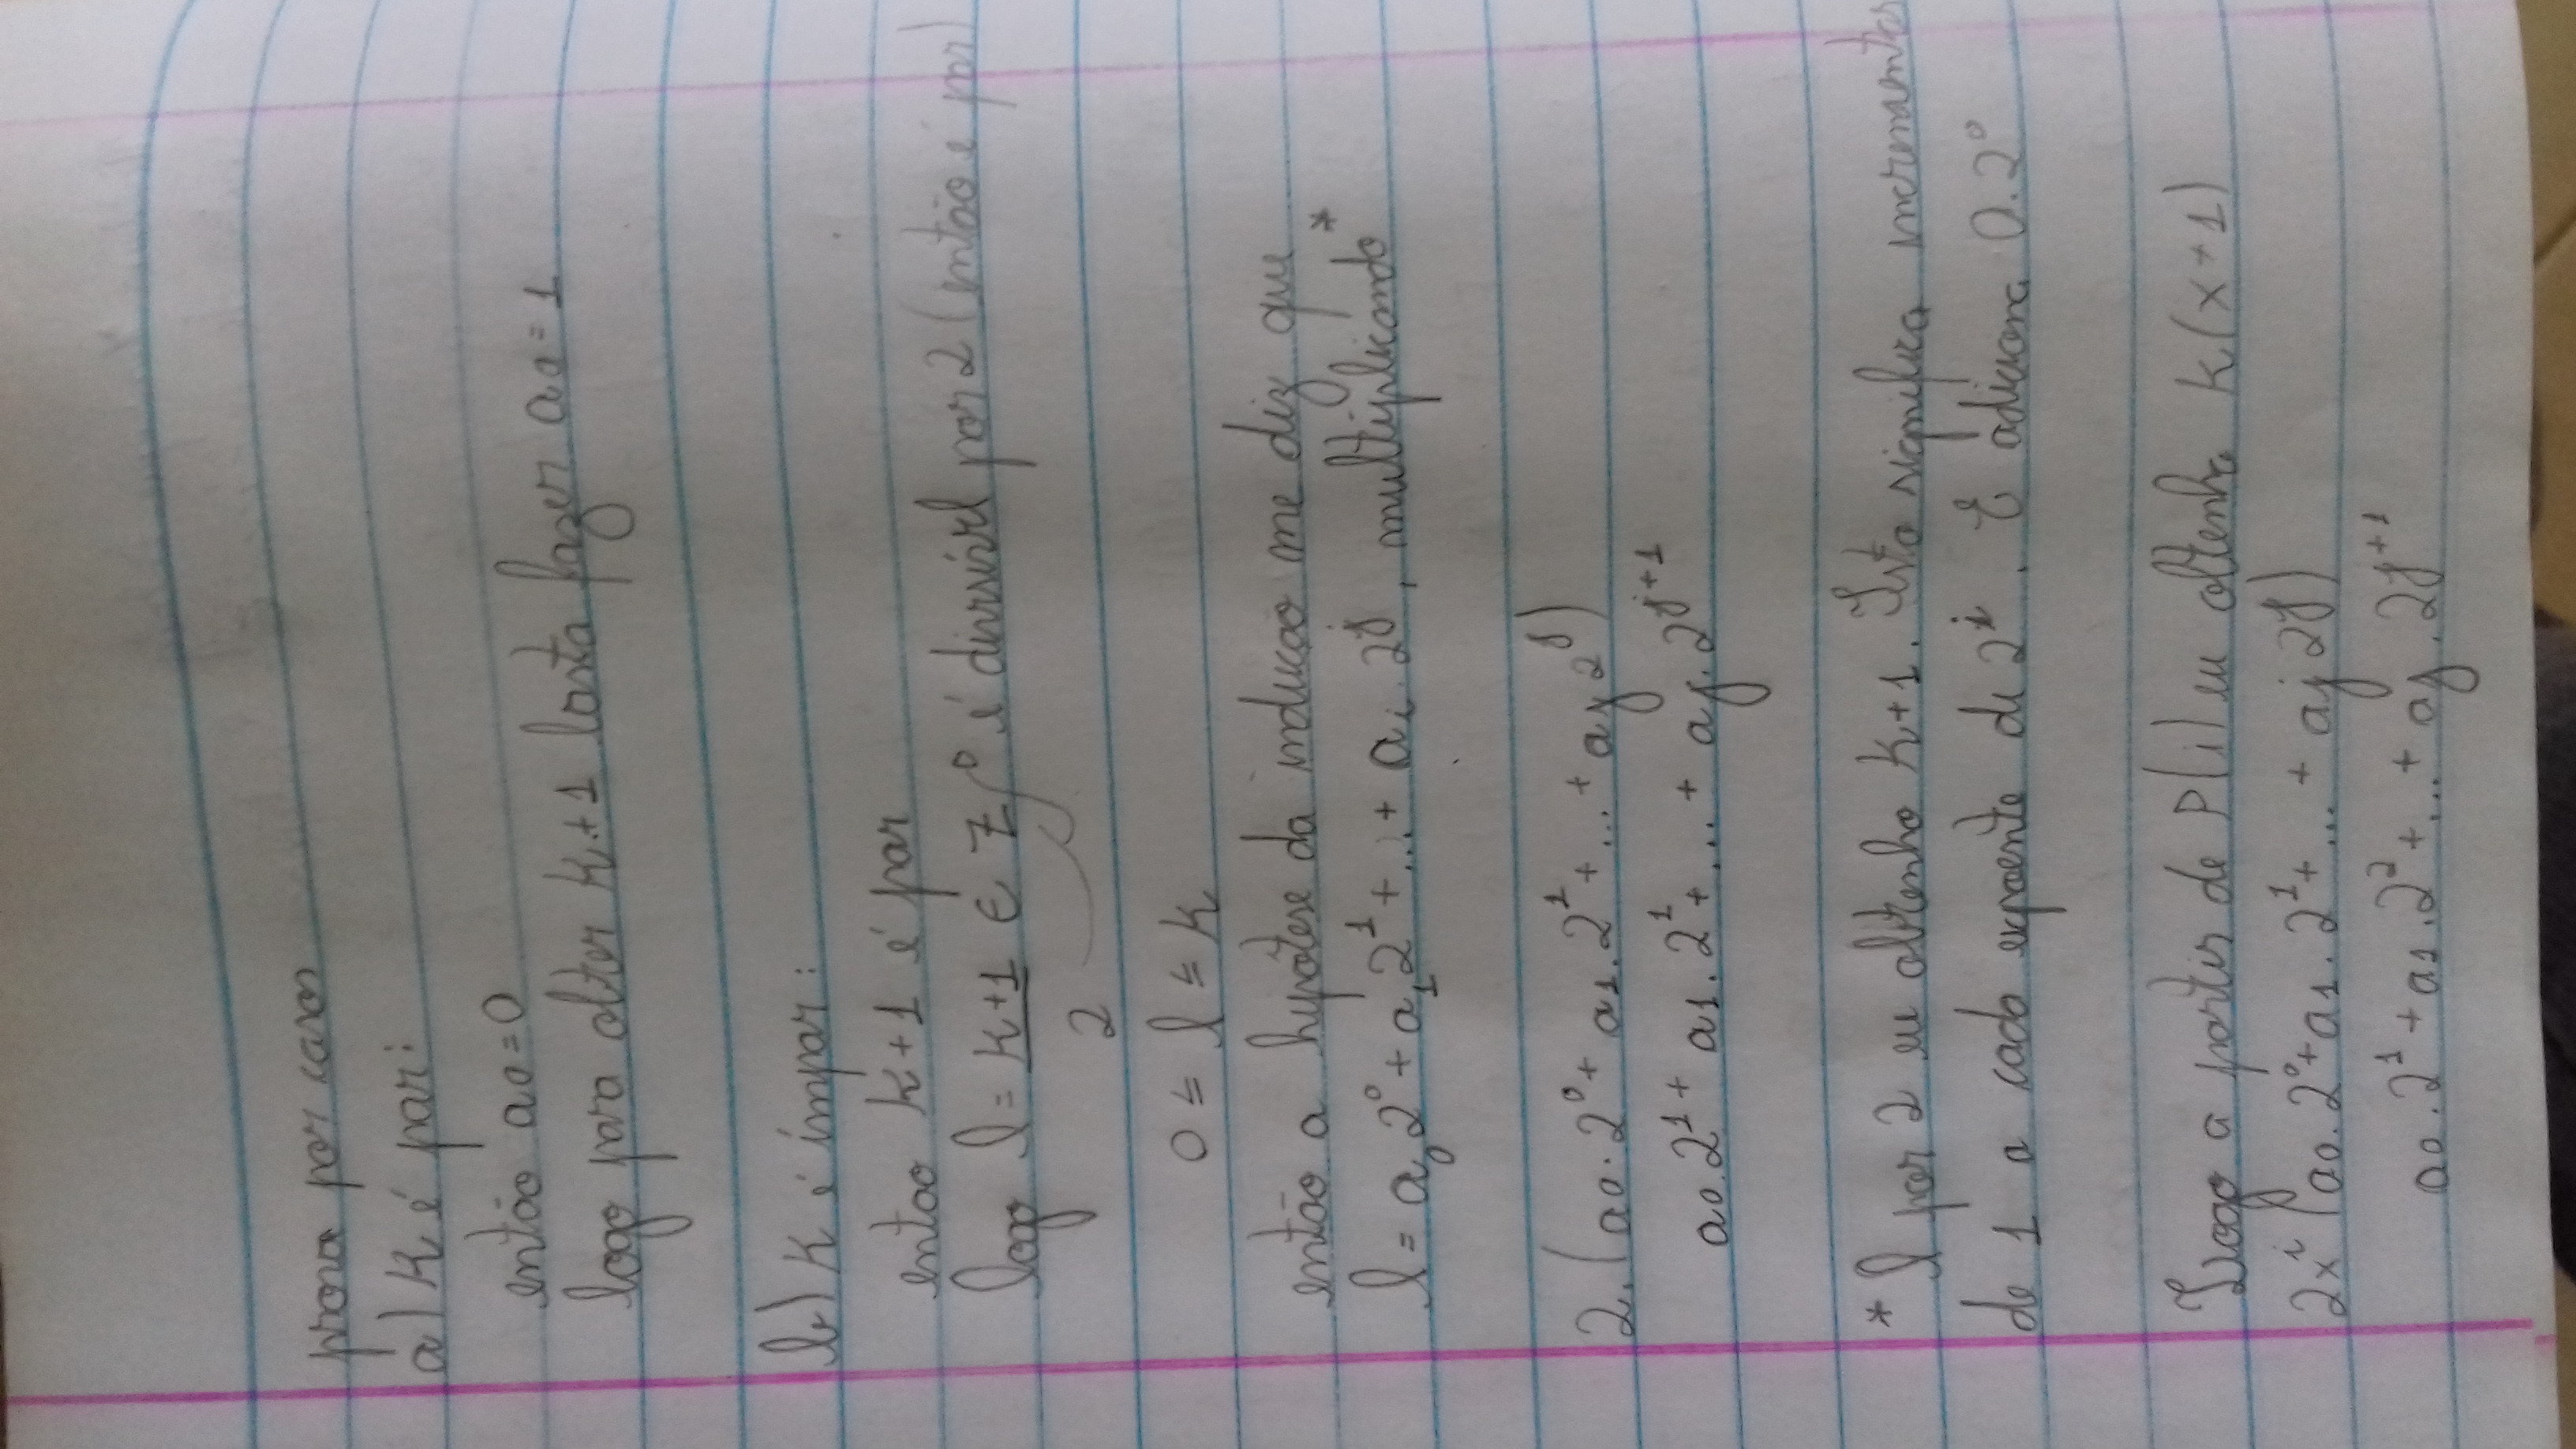 prova por casos
a) K é par:
então a0=0
logo para obter k+1 basta fazer a0=1
b) K é impar:
entao k+1 é par
logo l = k+1 ∈ Z, é divisível por 2 (então é par)
2
0 ≤ l ≤ k
então a hypótese da inducao me diz que
l = a₀2⁰ + a₁2¹ + ... + aᵢ.2ʲ, multiplicando*
2.(a0.2⁰ + a1.2¹ + ... + aj2ʲ)
a0.2¹ + a1.2¹ + ... + aj.2ʲ⁺¹
* l por 2 eu obtenho k+1. Isto significa incremento
de 1 a cada expoente de 2ⁱ. E adiciona 0.2⁰
Logo a partir de P(i) eu obtenho k(x+1)
2xⁱ (a0.2⁰ + a1.2¹ + ... + aj2ʲ)
a0.2¹ + a1.2² + ... + aj.2ʲ⁺¹